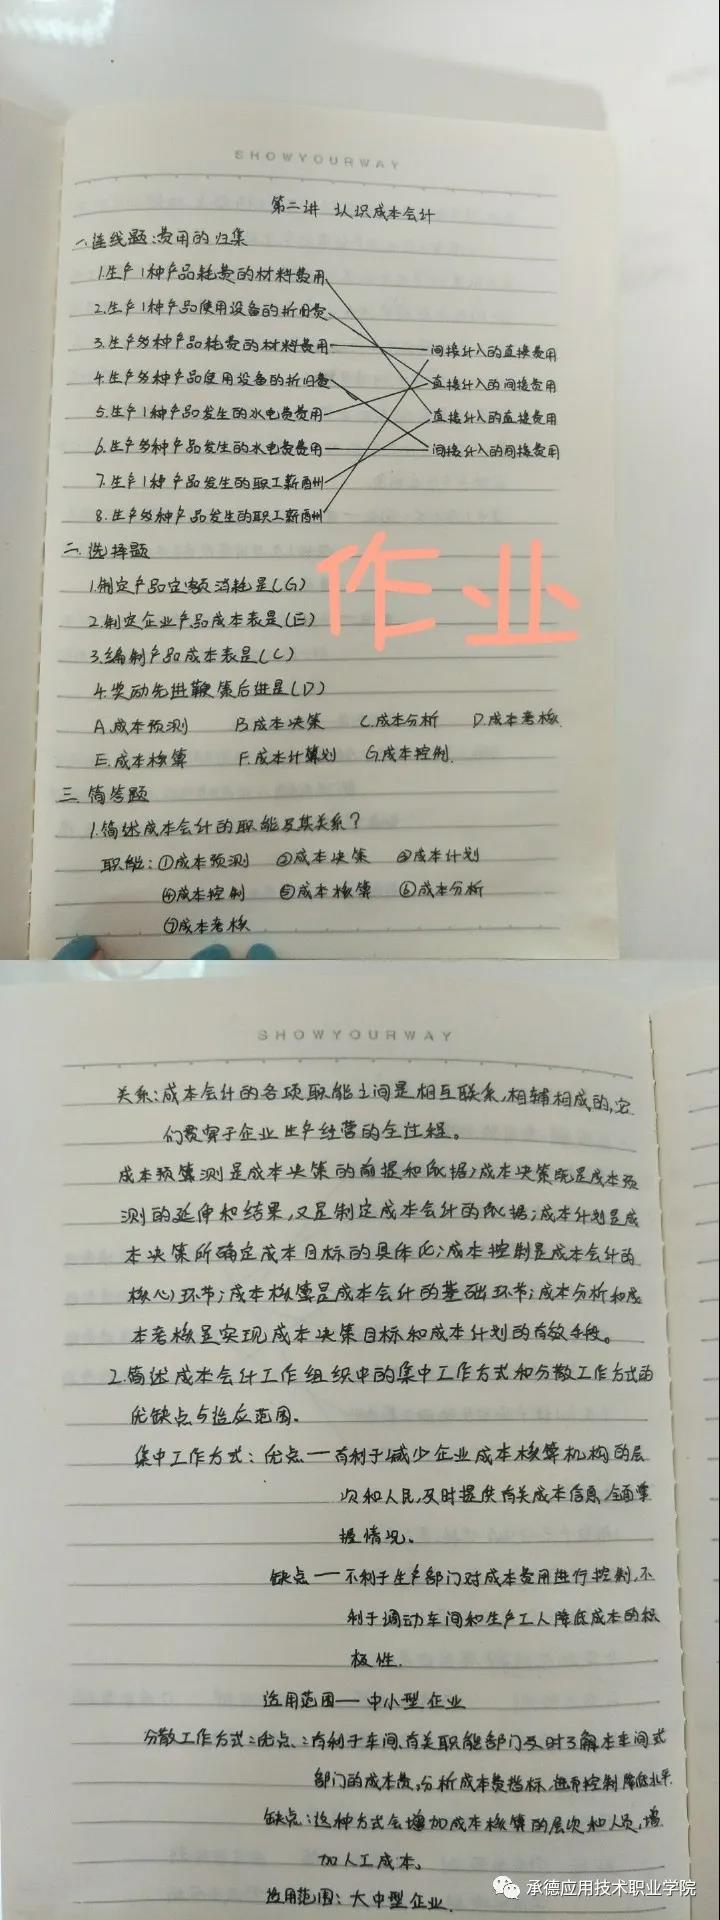 SHOWYOURWAY
第二讲 认识成本会计
一.连线题:费用的归集
1.生产1种产品耗费的材料费用
2.生产1种产品使用设备的折旧费
3.生产多种产品耗费的材料费用
间接计入的直接费用
4.生产多种产品使用设备的折旧费
直接计入的间接费用
5.生产1种产品发生的水电费费用
直接计入的直接费用
6.生产多种产品发生的水电费费用
间接计入的间接费用
7.生产1种产品发生的职工薪酬
8.生产多种产品发生的职工薪酬
二.选择题
作业
1.制定产品定额消耗是(G)
2.制定企业产品成本表是(E)
3.编制产品成本表是(C)
4.奖励先进鞭策后进是(D)
A.成本预测 B.成本决策 C.成本分析 D.成本考核
E.成本核算 F.成本计划 G.成本控制
三.简答题
1.简述成本会计的职能及其关系?
职能:①成本预测 ②成本决策 ③成本计划
④成本控制 ⑤成本核算 ⑥成本分析
⑦成本考核
SHOWYOURWAY
关系:成本会计的各项职能之间是相互联系,相辅相成的,它
们贯穿于企业生产经营的全过程。
成本预测是成本决策的前提和依据;成本决策既是成本预
测的延伸和结果,又是制定成本会计的依据;成本计划是成
本决策所确定成本目标的具体化;成本控制是成本会计的
核心环节;成本核算是成本会计的基础环节;成本分析和成
本考核是实现成本决策目标和成本计划的有效手段。
2.简述成本会计工作组织中的集中工作方式和分散工作方式的
优缺点与适应范围。
集中工作方式:优点一有利于减少企业成本核算机构的层
次和人民,及时提供有关成本信息,全面掌
握情况。
缺点一不利于生产部门对成本费用进行控制,不
利于调动车间和生产工人降低成本的积
极性.
适用范围一中小型企业
分散工作方式:优点:有利于车间、有关职能部门及时了解本车间或
部门的成本费,分析成本费指标,进而控制降低水平.
缺点:这种方式会增加成本核算的层次和人员,增
加人工成本。
适用范围:大中型企业.
承德应用技术职业学院